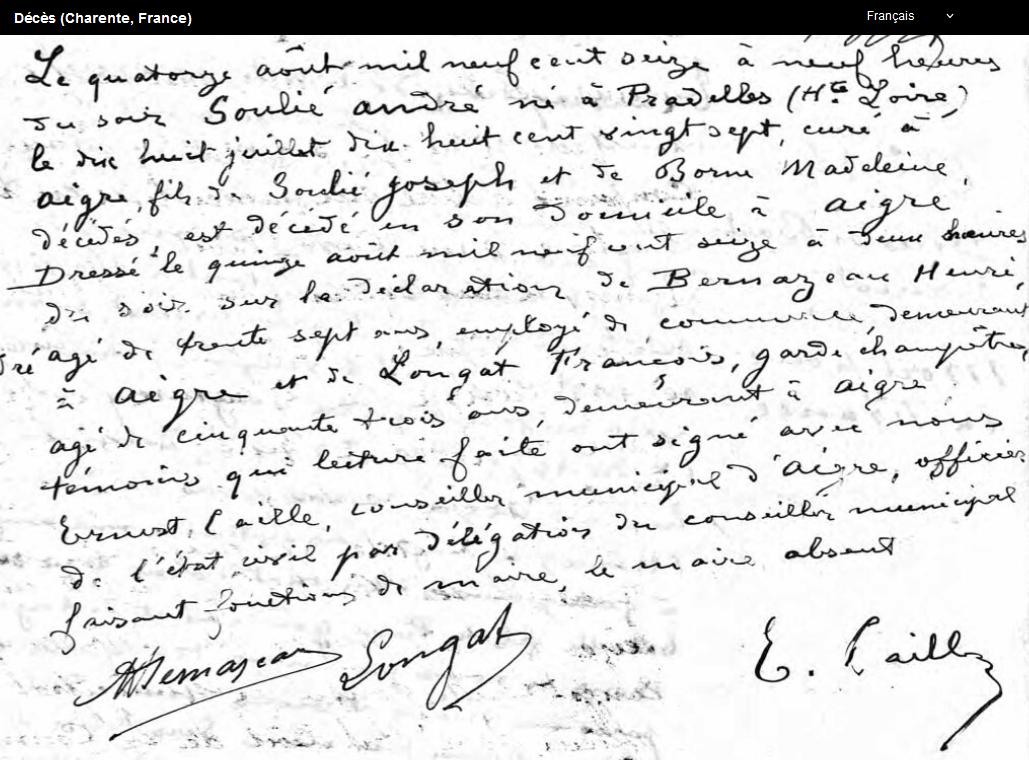 Décès (Charente, France)
Français
Le quatorze août mil neuf cent seize à neuf heures
du soir Soulié andré né à Pradelles (Hte Loire)
le dix huit juillet dix huit cent vingt sept, curé à
aigre, fils de Soulié joseph et de Borne Madeleine,
décédés, est décédé en son domicile à aigre
Dressé le quinze août mil neuf cent seize à deux heures
du soir sur la déclaration de Bernazeau Henri,
agé de trente sept ans, employé de commerce, demeurant
à aigre et de Longat François, garde champêtre,
agé de cinquante trois ans demeurant à aigre
témoins qui lecture faite ont signé avec nous
Ernest, Caille, conseiller municipal d'aigre, officier
de l'état civil par délégation du conseiller municipal
faisant fonctions de maire, le maire absent
Longat
E. Caille